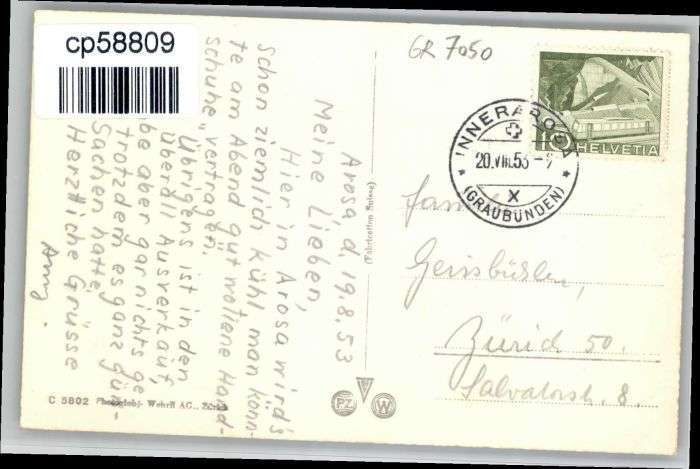 cp58809
GR 7050
HELVETIA
10
INNERAROSA
20.VIII.53-
X
(GRAUBÜNDEN)
Arosa, d. 19.8.53
Meine Lieben,
Hier in Arosa wird's
schon ziemlich kühl, man könn-
te am Abend gut wollene Hand-
schuhe vertragen.
Übrigens ist in den
überall Ausverkauf,
be aber gar nichts ge
trotzdem es ganz gün-
Sachen hatte.
Herzliche Grüsse
Geissbühler,
Zürich 50.
Salvatorstr. 8.
(Fabrication Suisse)
C 5802 Photoglob-Wehrli AG., Zürich
PZ W